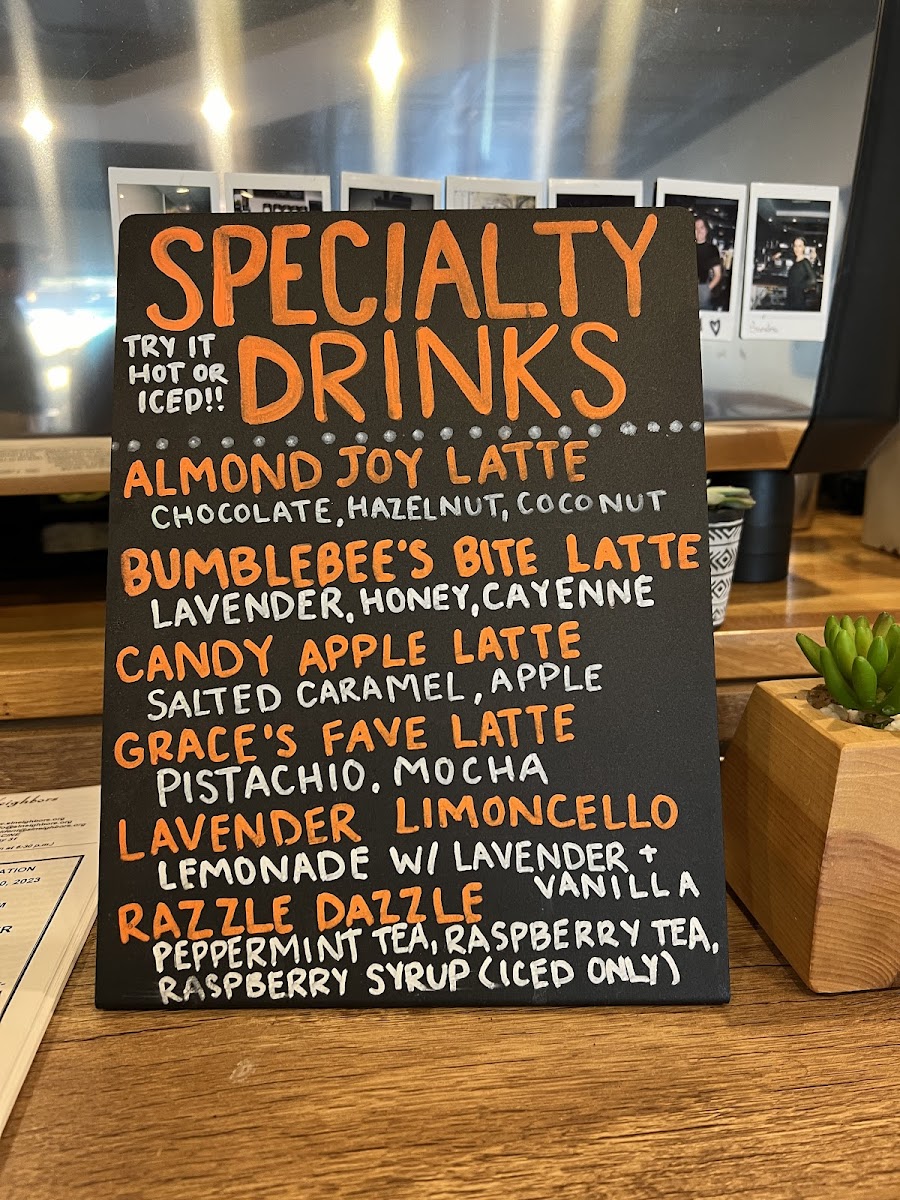 SPECIALTY
DRINKS
TRY IT
HOT OR
ICED!!
ALMOND JOY LATTE
CHOCOLATE, HAZELNUT, COCONUT
BUMBLEBEE'S BITE LATTE
LAVENDER, HONEY, CAYENNE
CANDY APPLE LATTE
SALTED CARAMEL, APPLE
GRACE'S FAVE LATTE
PISTACHIO, MOCHA
LAVENDER LIMONCELLO
LEMONADE W/ LAVENDER +
VANILLA
RAZZLE DAZZLE
PEPPERMINT TEA, RASPBERRY TEA,
RASPBERRY SYRUP (ICED ONLY)